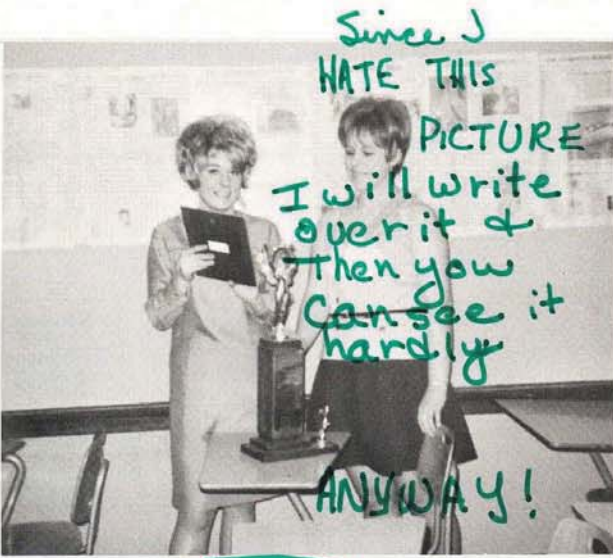 Since I
HATE THIS
PICTURE
I will write
over it &
Then you
Can see it
hardly
ANYWAY!